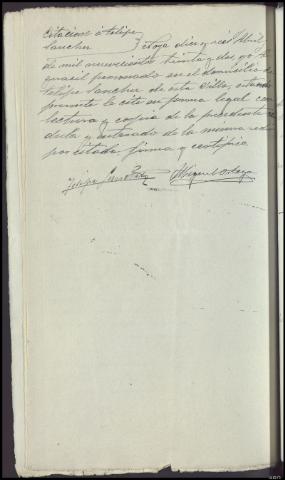 Citacion á Felipe
Sanchez } diez y seis Abril
de mil novecientos treinta y dos, yo el
guacil personado en el domicilio de
Felipe Sanchez de esta Villa, estando
presente le cité en forma legal con
lectura y copia de la precedente
dula y enterado de la misma se dá
por citado firma y certifico
Felipe Sanchez Miguel Ortega